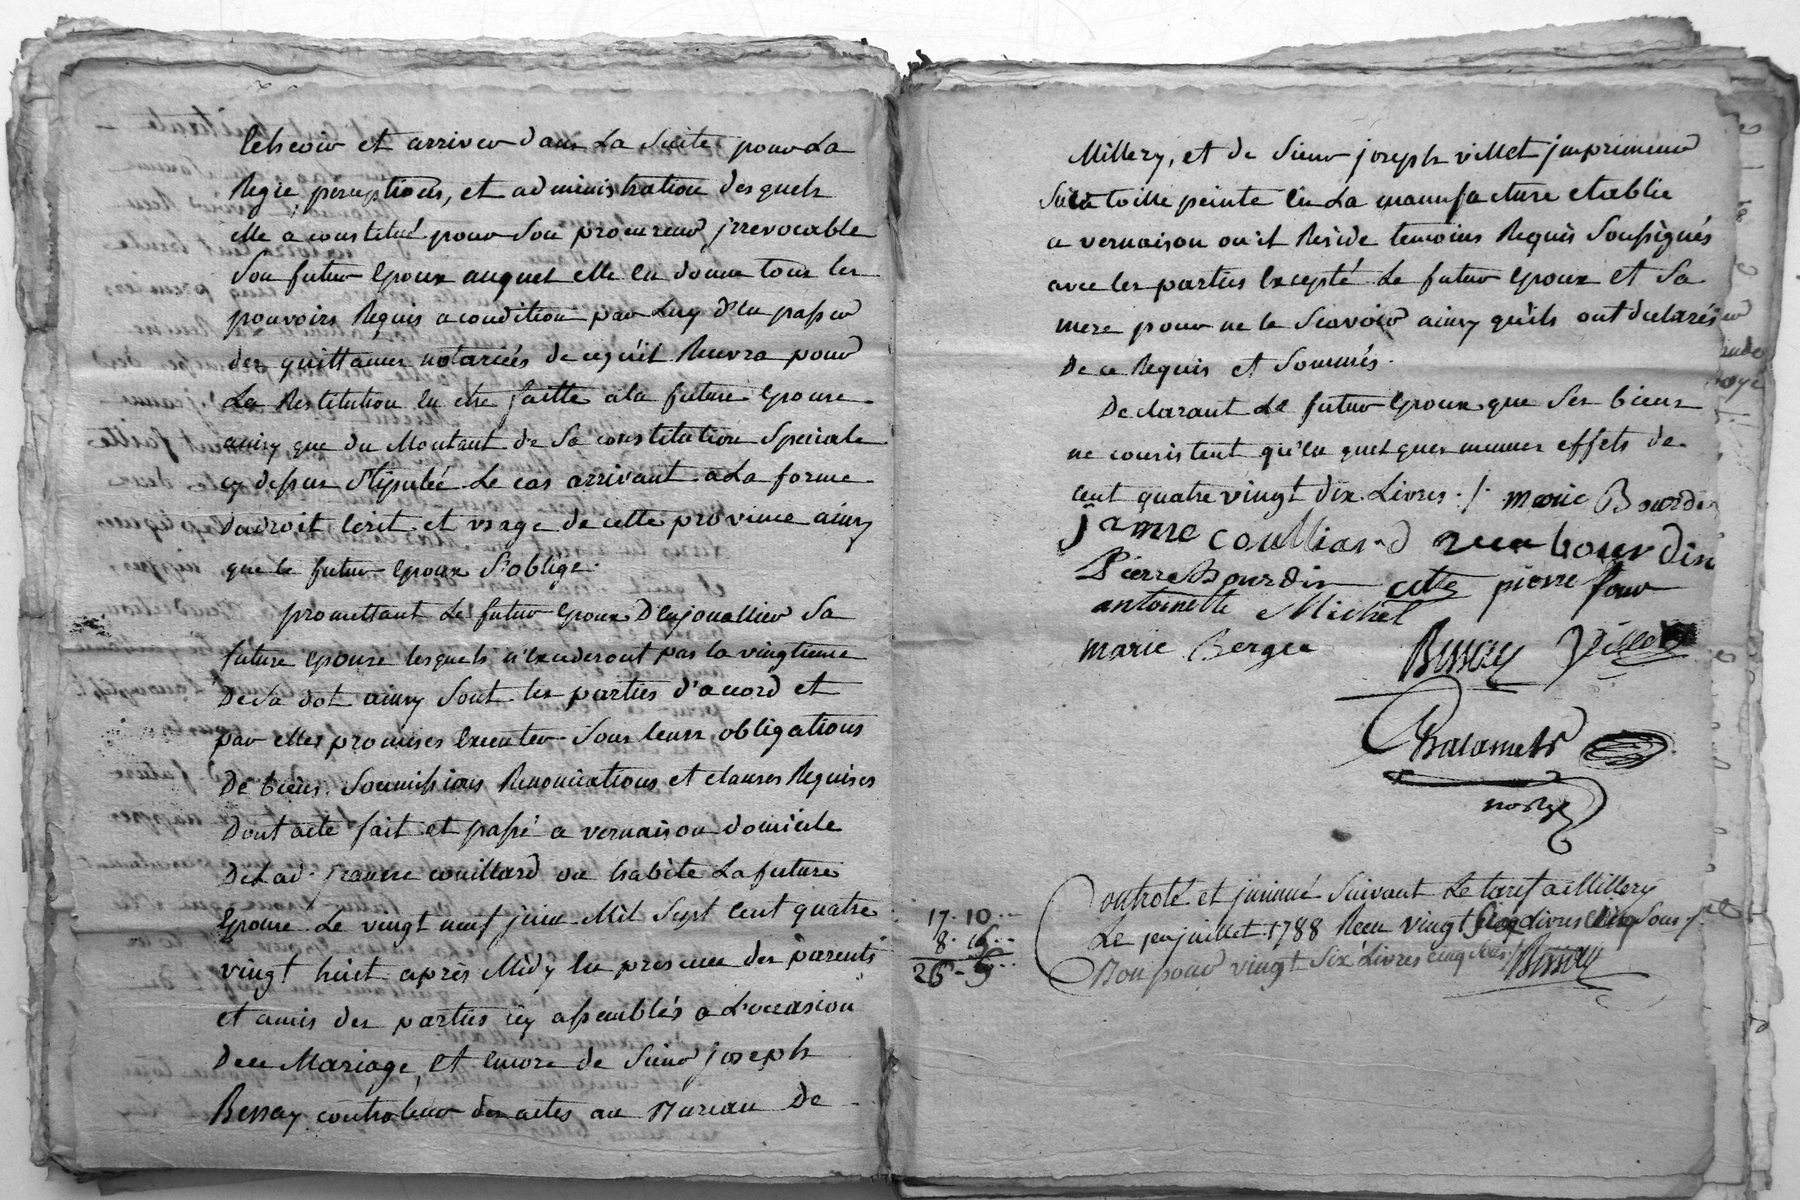 echoir et arriver dans La Suite pour La
Regie, perceptions, et administration desquels
elle a constitué pour Son procureur jrrevocable
Son futur Epoux auquel elle en donne tous les
pouvoirs Requis a condition par Luy d'en passer
des quittances notariées de ce qu'il Recevra pour
La Restitution en etre faitte a la future Epouse
ainsy que du Montant de Sa constitution Speciale
cy dessus Stipulée Le cas arrivant a La forme
Du droit Ecrit et usage de cette province ainsy
que le futur Epoux S'oblige.
promettant Le futur Epoux D'Enjouallier Sa
future Epouse lesquels n'Excederont pas le vingtieme
De Sa dot ainsy Sont les parties d'accord et
par elles promises Executer Sous leurs obligations
De biens, Soumissions Renonciations et clauses Requises
Dont acte fait et passé a vernaison domicile
De Lad. Jeanne couillard ou habite La future
Epouse Le vingt neuf juin Mil Sept Cent quatre
vingt huit apres Midy En presence des parents
et amis des parties icy assemblés a L'occasion
De ce Mariage, Et Encore de Sieur Joseph
Bessay controlleur des actes au Bureau De
Millery, et de Sieur joseph villet jmprimeur
Sur toille peinte En La manufacture etablie
a vernaison ou il Reside temoins Requis Soussignés
avec les parties Excepté Le futur Epoux Et Sa
mere pour ne le Scavoir ainsy qu'ils ont declarés
De ce Requis et Sommés.
Declarant Le futur Epoux que Ses biens
ne consistent qu'en quelques menus effets de
Cent quatre vingt dix Livres ./. marie Bourdin
janne coulliard bourdin
Pierre Bourdin pierre
antoinette Michel
marie Berger Bessay Villet
Chalamel
nore
Controlé et jnsinué Suivant Le tarif a Millery
17. 10
Le 1er juillet 1788 Recu vingt Six Livres Cinq Sous
8. 15
Bon pour vingt Six Livres cinq sols Bessay
26 - 5